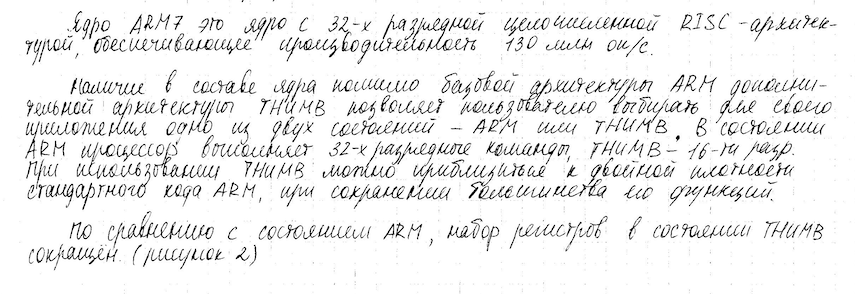 Ядро ARM7 это ядро с 32-х разрядной целочисленной RISC-архитек-
турой, обеспечивающее производительность 130 млн оп/с.
Наличие в составе ядра помимо базовой архитектуры ARM дополни-
тельной архитектуры THUMB позволяет пользователю выбирать для своего
приложения одно из двух состояний - ARM или THUMB. В состоянии
ARM процессор выполняет 32-х разрядные команды, THUMB - 16-ти разр.
При использовании THUMB можно приблизиться к двойной плотности
стандартного кода ARM, при сохранении большинства его функций.
По сравнению с состоянием ARM, набор регистров в состоянии THUMB
сокращён. (рисунок 2)